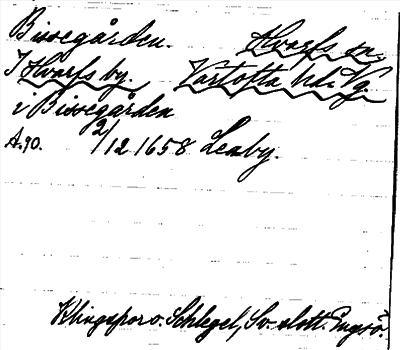 Bissegården. Hvarfs sn.
I Hvarfs by. Vartofta hd. Vg.
i Bissegården
A.90. 2/12 1658 Lenby.
Klingspor o. Schlegel, Sv. slott. Engsö.